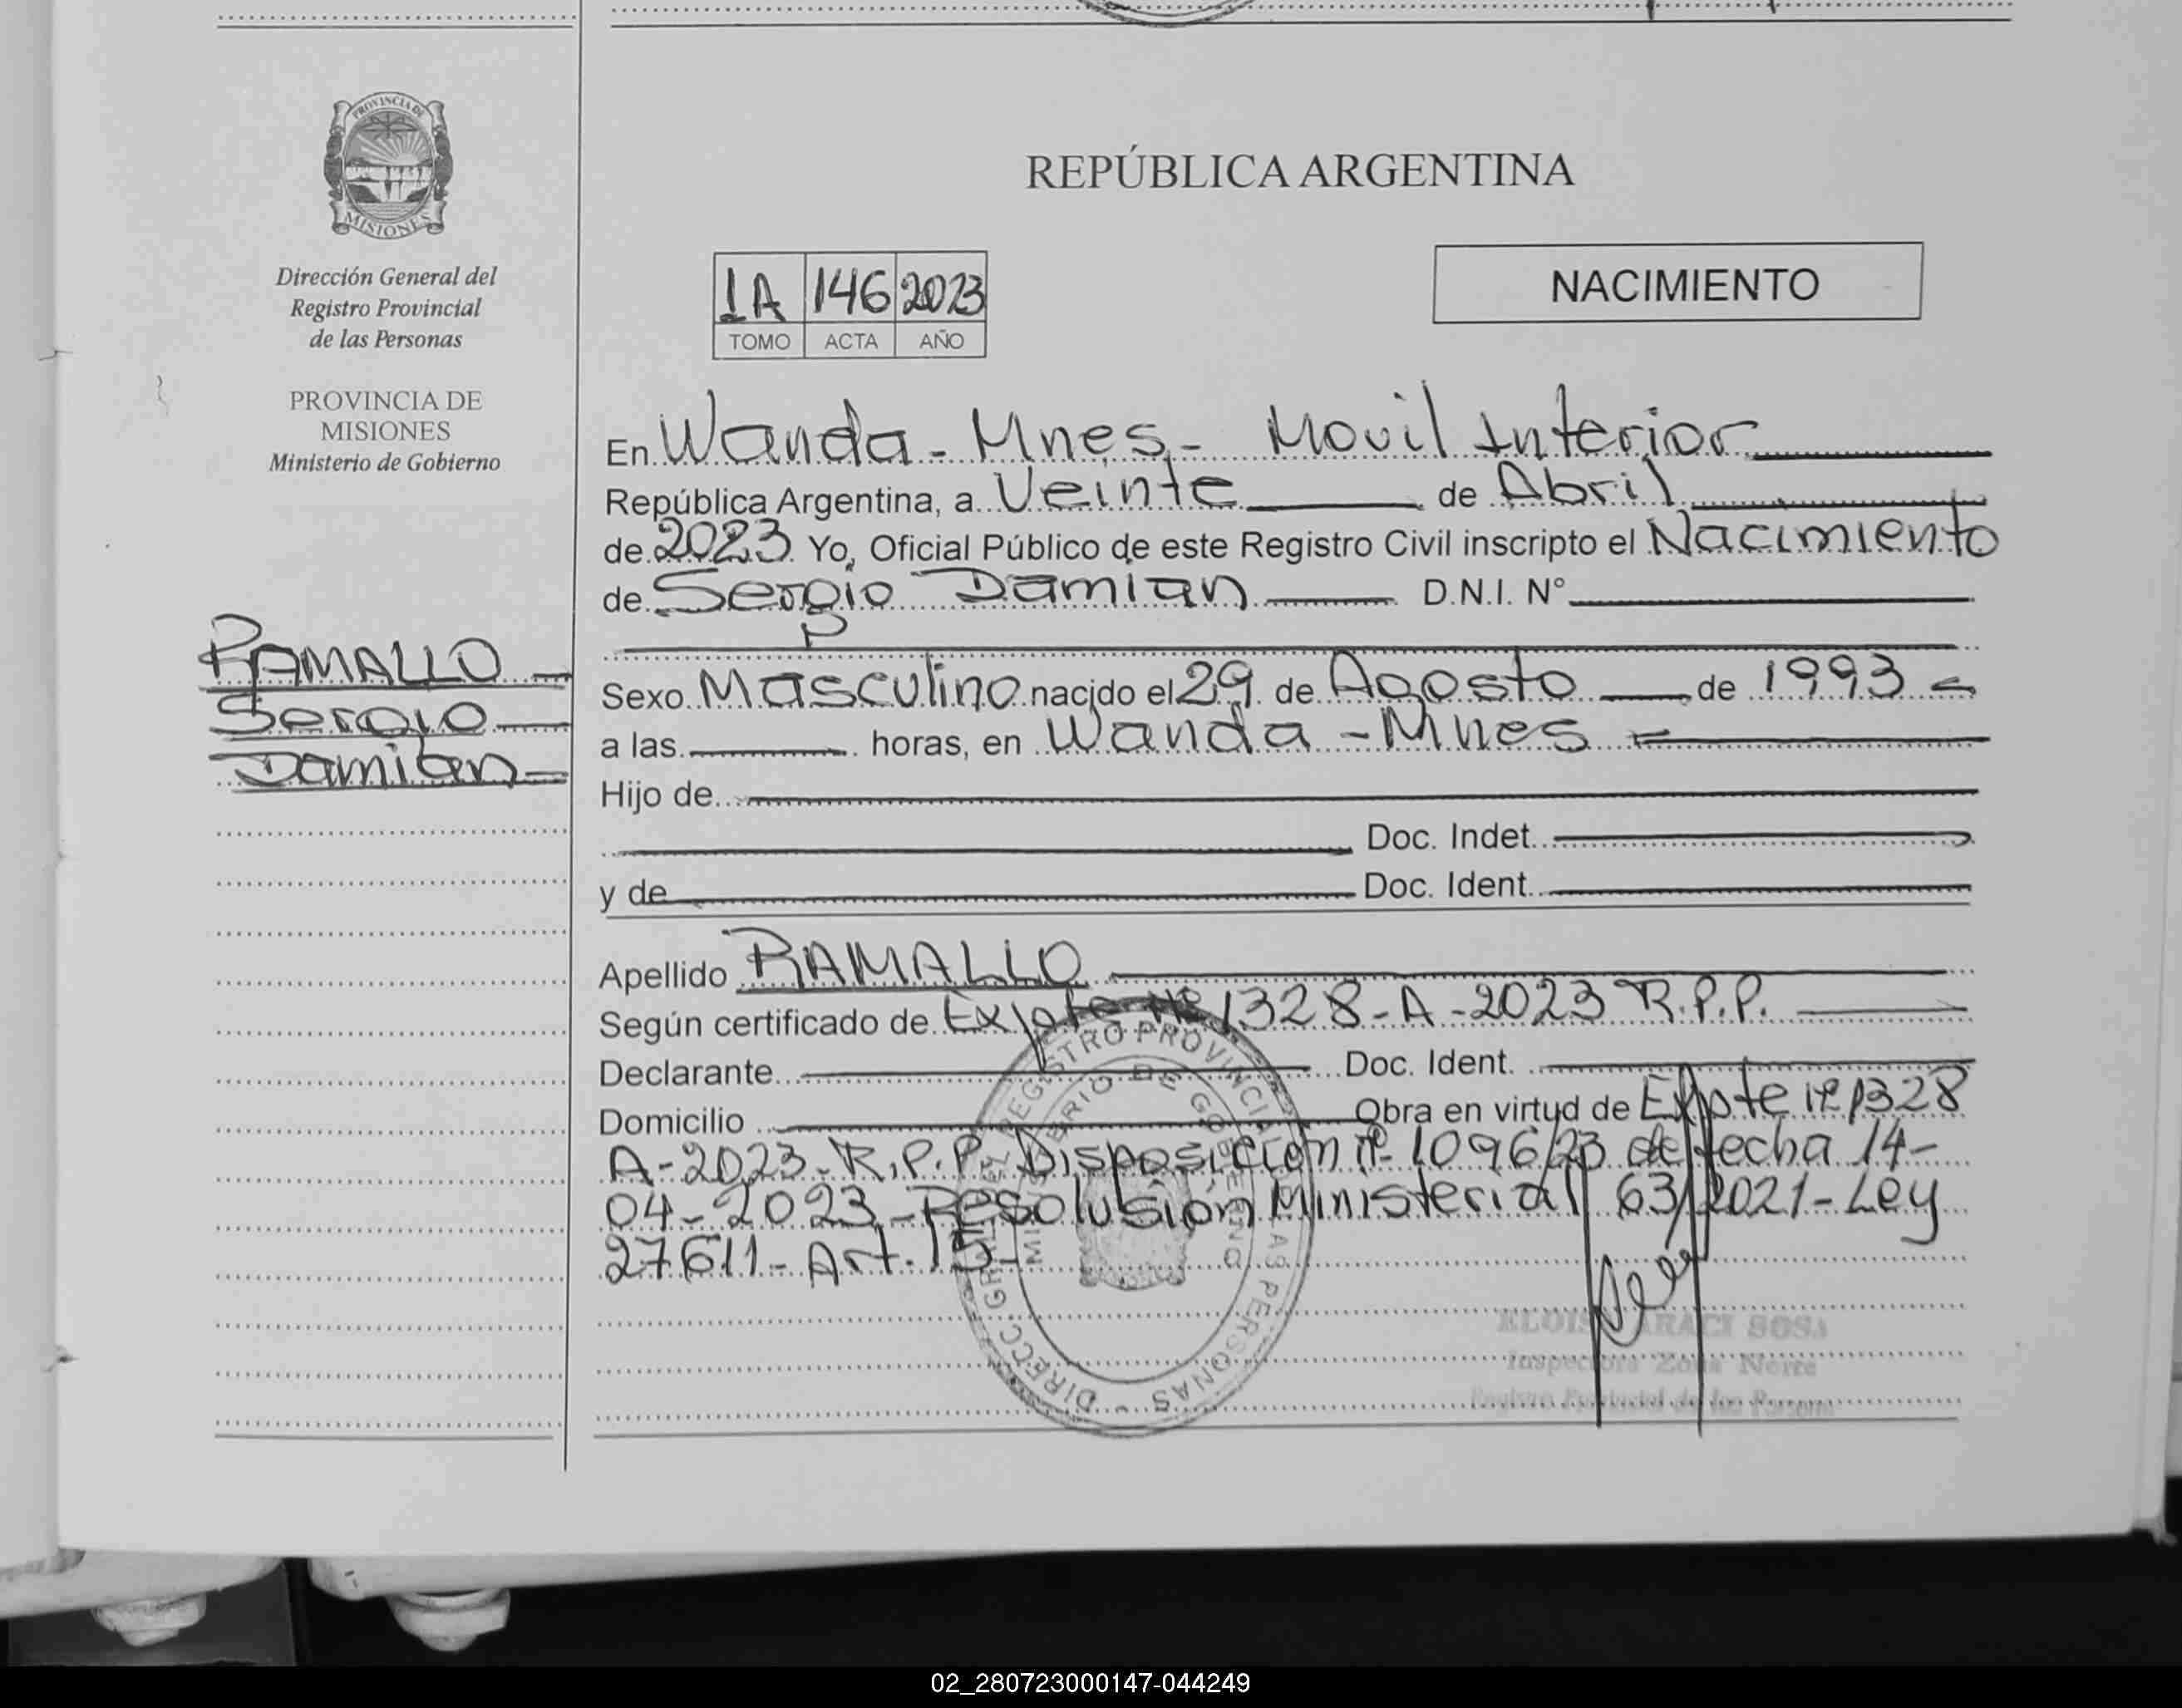 PROVINCIA DE
MISIONES
Dirección General del
Registro Provincial
de las Personas
PROVINCIA DE
MISIONES
Ministerio de Gobierno
RAMALLO
Sergio
Damian
REPÚBLICA ARGENTINA
1A 146 2023
TOMO ACTA AÑO
NACIMIENTO
En Wanda - Mnes - Movil Interior
República Argentina, a Veinte de Abril
de 2023 Yo, Oficial Público de este Registro Civil inscripto el Nacimiento
de Sergio Damian D.N.I. N°
Sexo Masculino nacido el 29 de Agosto de 1993
a las horas, en Wanda - Mnes
Hijo de
Doc. Indet.
y de Doc. Ident.
Apellido RAMALLO
Según certificado de Expte Nº 1328-A-2023 R.P.P.
Declarante Doc. Ident.
Domicilio Obra en virtud de Expte nº 1328
A-2023-R.P.P. Disposición nº 1096/23 de fecha 14-
04-2023-Resolusión Ministerial 63/2021-Ley
27611-Art. 15-
DIRECC. GRAL. DEL REGISTRO PROVINCIAL DE LAS PERSONAS
MINISTERIO DE GOBIERNO
ARACI SOSA
Inspectora Zona Norte
Registro Provincial de las Personas
02_280723000147-044249